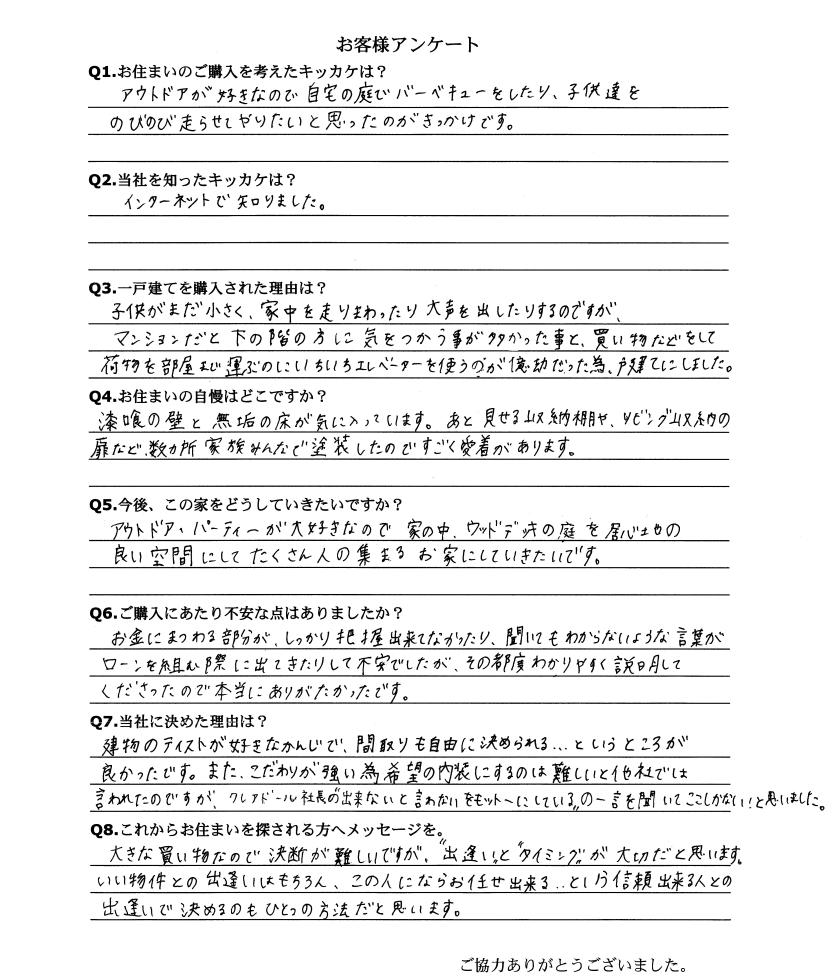 お客様アンケート
Q1.お住まいのご購入を考えたキッカケは？
アウトドアが好きなので自宅の庭でバーベキューをしたり、子供達を
のびのび走らせてやりたいと思ったのがきっかけです。
Q2.当社を知ったキッカケは？
インターネットで知りました。
Q3.一戸建てを購入された理由は？
子供がまだ小さく、家中を走りまわったり大声を出したりするのですが、
マンションだと下の階の方に気をつかう事が多かった事と、買い物などをして
荷物を部屋まで運ぶのにいちいちエレベーターを使うのが億劫だった為、戸建てにしました。
Q4.お住まいの自慢はどこですか？
漆喰の壁と無垢の床が気に入っています。あと見せる収納棚や、リビング収納の
扉など、数カ所家族みんなで塗装したのですごく愛着があります。
Q5.今後、この家をどうしていきたいですか？
アウトドア、パーティーが大好きなので家の中、ウッドデッキの庭を居心地の
良い空間にしてたくさん人の集まるお家にしていきたいです。
Q6.ご購入にあたり不安な点はありましたか？
お金にまつわる部分が、しっかり把握出来てなかったり、聞いてもわからないような言葉が
ローンを組む際に出てきたりして不安でしたが、その都度わかりやすく説明して
くださったので本当にありがたかったです。
Q7.当社に決めた理由は？
建物のテイストが好きなかんじで、間取りも自由に決められる…というところが
良かったです。また、こだわりが強い為希望の内装にするのは難しいと他社では
言われたのですが、クレアドール社長の"出来ないと言わないをモットーにしている"の一言を聞いてここしかない！と思いました。
Q8.これからお住まいを探される方へメッセージを。
大きな買い物なので決断が難しいですが、"出逢い"と"タイミング"が大切だと思います。
いい物件との出逢いはもちろん、この人にならお任せ出来る…という信頼出来る人との
出逢いで決めるのもひとつの方法だと思います。
ご協力ありがとうございました。